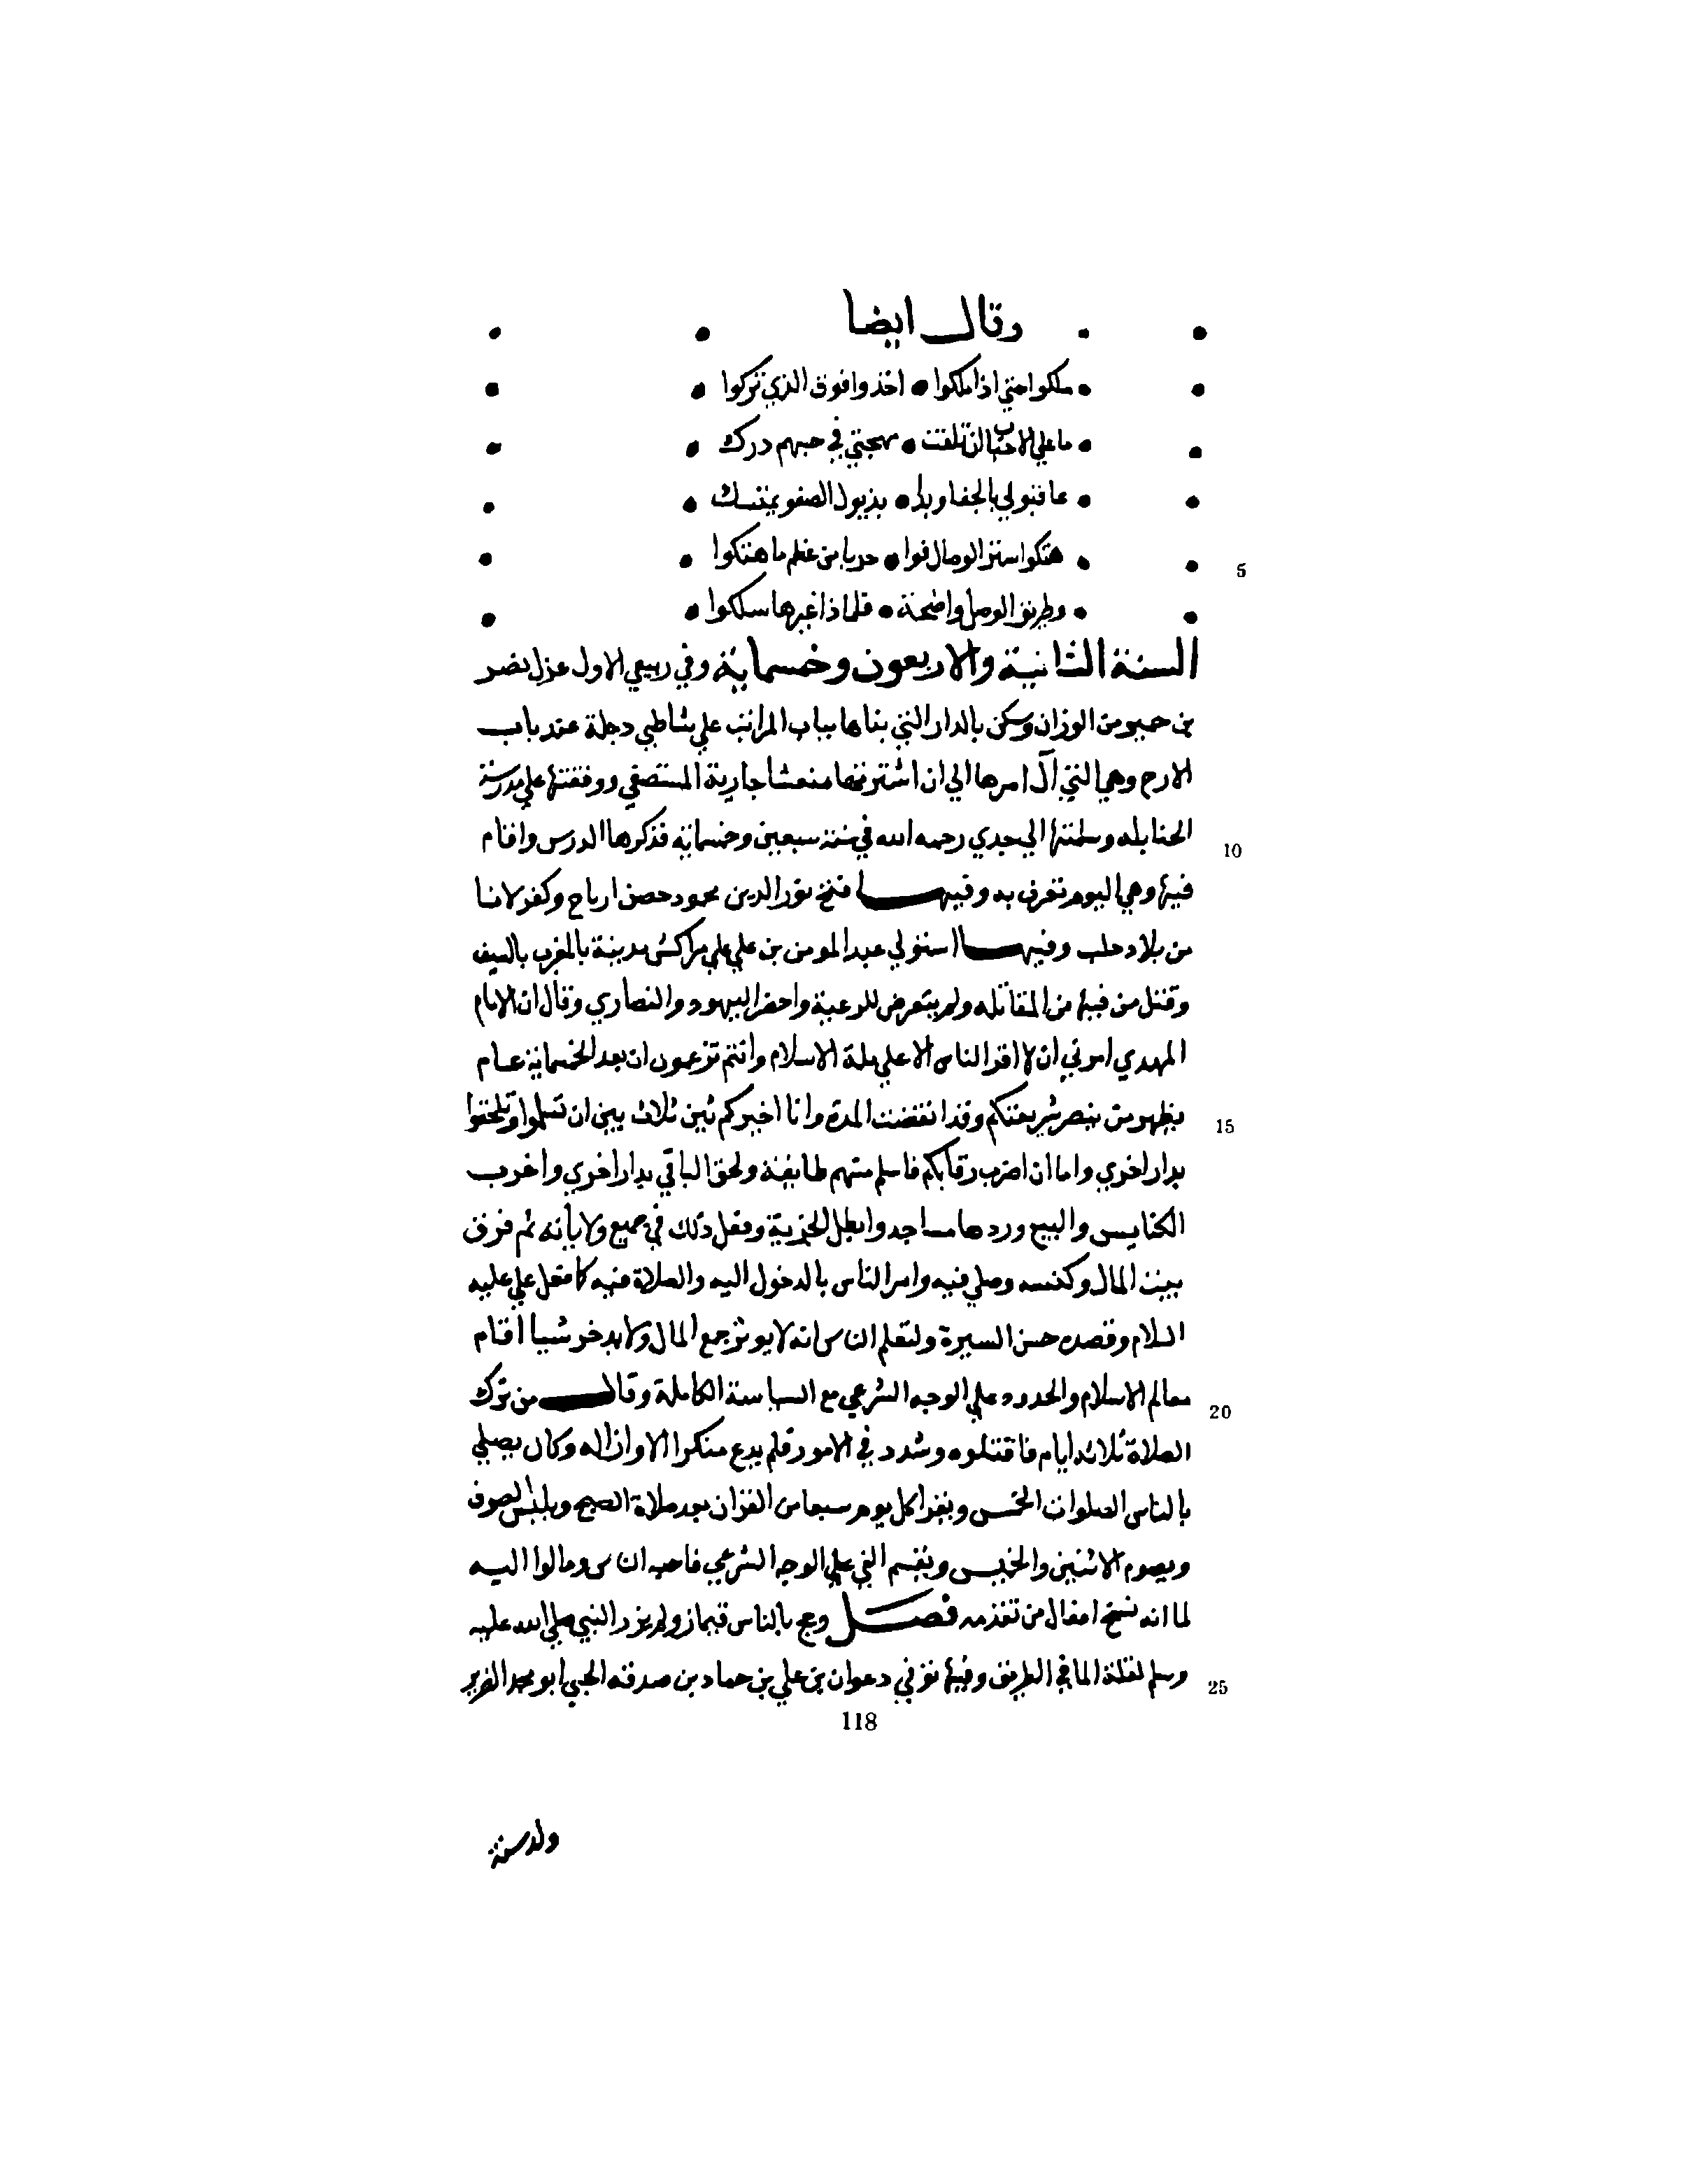 وقال ايضا
ملكوا حتي اذا ملكوا • اخذوا فوق الذي تركوا
ما علي الاحباب ان تلفت • مهجتي في حبهم درك
عاقبوني بالجفا وبلا • بذيول الصفو يمتسك
هتكوا ستر الوصال فوا • حربا من عظم ما هتكوا
5
وطريق الوصل واضحة • فلماذا غيرها سلكوا
السنة الثانية والاربعون وخمسماية وفي ربيع الاول عزل نصر
بن جهير من الوزان وسكن بالدار التي بناها بباب المراتب علي شاطي دجلة عند باب
الازج وهي التي آل امرها الي ان اشترتها منفشا جارية المستضي ووقفتها علي مدرسة
الحنابله وسلمتها الي جدي رحمه الله في سنة سبعين وخمساية فذكرها الدرس واقام
10
فيها وهي اليوم تعرف به وفيها فتح نور الدين محمود حصن ارتاح وكفر لاثا
من بلاد حلب وفيها استولي عبد المومن بن علي علي مراكش مدينة بالمغرب بالسيف
وقتل من فيها من المقاتله ولم يتعرض للرعية واحضر اليهود والنصاري وقال ان الامام
المهدي امرني ان لا اقر الناس الا علي ملة الاسلام وانتم تزعمون ان بعد الخمسماية عام
يظهر من ينصر شريعتكم وقد انقضت المدة وانا اخيركم بين ثلاث بين ان تسلموا او تلحقوا
15
بدار اخري واما ان اضرب رقابكم فاسلم منهم طايفة ولحق الباقي بدار اخري واخرب
الكنايس والبيع وردها مساجد وابطل الجزية وفعل ذلك في جميع ولاياته ثم فرق
بيت المال وكنسه وصلي فيه وامر الناس بالدخول اليه والصلاة فيه كما فعل علي عليه
السلام وقصده حسن السيرة وليعلم الناس انه لا يوثر جمع المال ولا يدخر شيا اقام
معالم الاسلام والحدود علي الوجه الشرعي مع السياسة الكاملة وقال من ترك
20
الصلاة ثلاثه ايام فاقتلوه وشدد في الامور فلم يدع منكرا الا وازاله وكان يصلي
بالناس الصلوات الخمس ويقرا كل يوم سبعا من القران بعد صلاة الصبح ويلبس الصوف
ويصوم الاثنين والخميس ويقسم الفي علي الوجه الشرعي فاحبه الناس ومالوا اليه
لما انه نسخ افعال من تقدمه فصل وحج بالناس قيماز ولم يزر النبي صلي الله عليه
وسلم لقلة الما في الطريق وفيها توفي دعوان بن علي بن حماد بن صدقه الجبي ابو محمد الضرير
25
118
ولد سنة